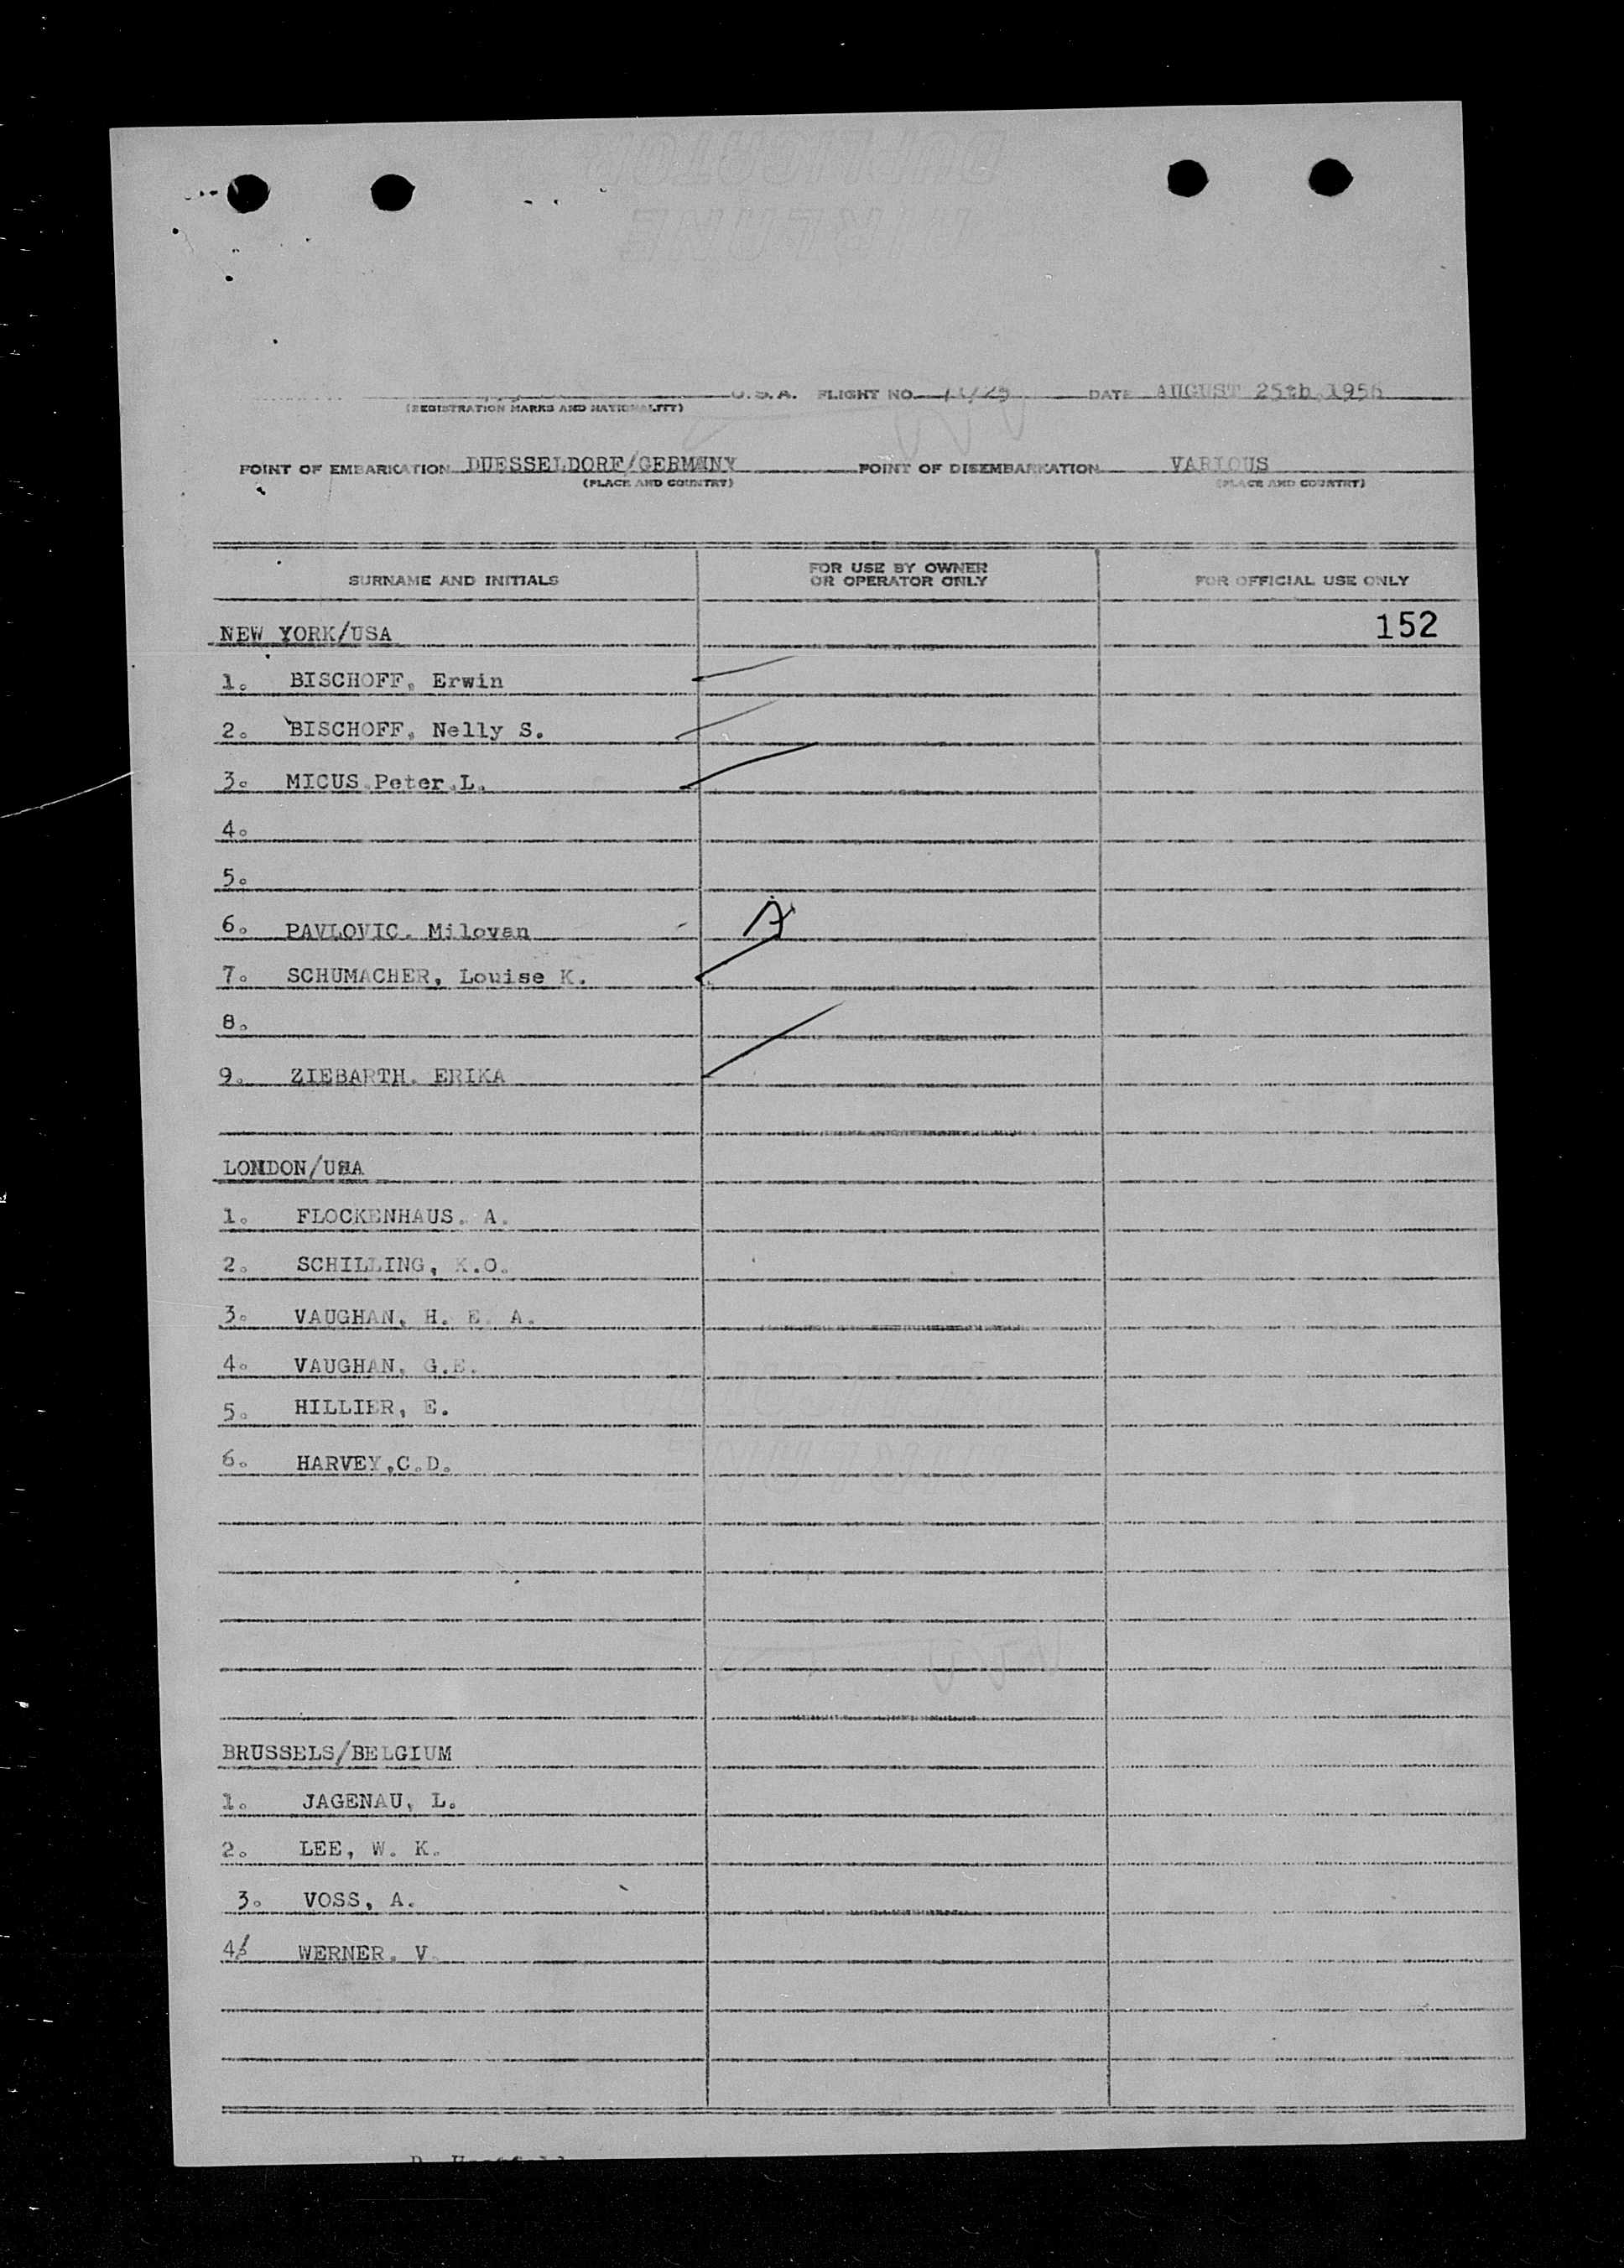 U.S.A. FLIGHT NO. DATE AUGUST 25th, 1956
(REGISTRATION MARKS AND NATIONALITY)
POINT OF EMBARKATION DUESSELDORF/GERMANY POINT OF DISEMBARKATION VARIOUS
(PLACE AND COUNTRY) (PLACE AND COUNTRY)
SURNAME AND INITIALS FOR USE BY OWNER OR OPERATOR ONLY FOR OFFICIAL USE ONLY
NEW YORK/USA 152
1. BISCHOFF, Erwin
2. BISCHOFF, Nelly S.
3. MICUS Peter L.
4.
5.
6. PAVLOVIC. Milovan
7. SCHUMACHER, Louise K.
8.
9. ZIEBARTH. ERIKA
LONDON/USA
1. FLOCKENHAUS. A.
2. SCHILLING, K.O.
3. VAUGHAN, H. E. A.
4. VAUGHAN, G.E.
5. HILLIER, E.
6. HARVEY,C.D.
BRUSSELS/BELGIUM
1. JAGENAU, L.
2. LEE, W. K.
3. VOSS, A.
4. WERNER. V.